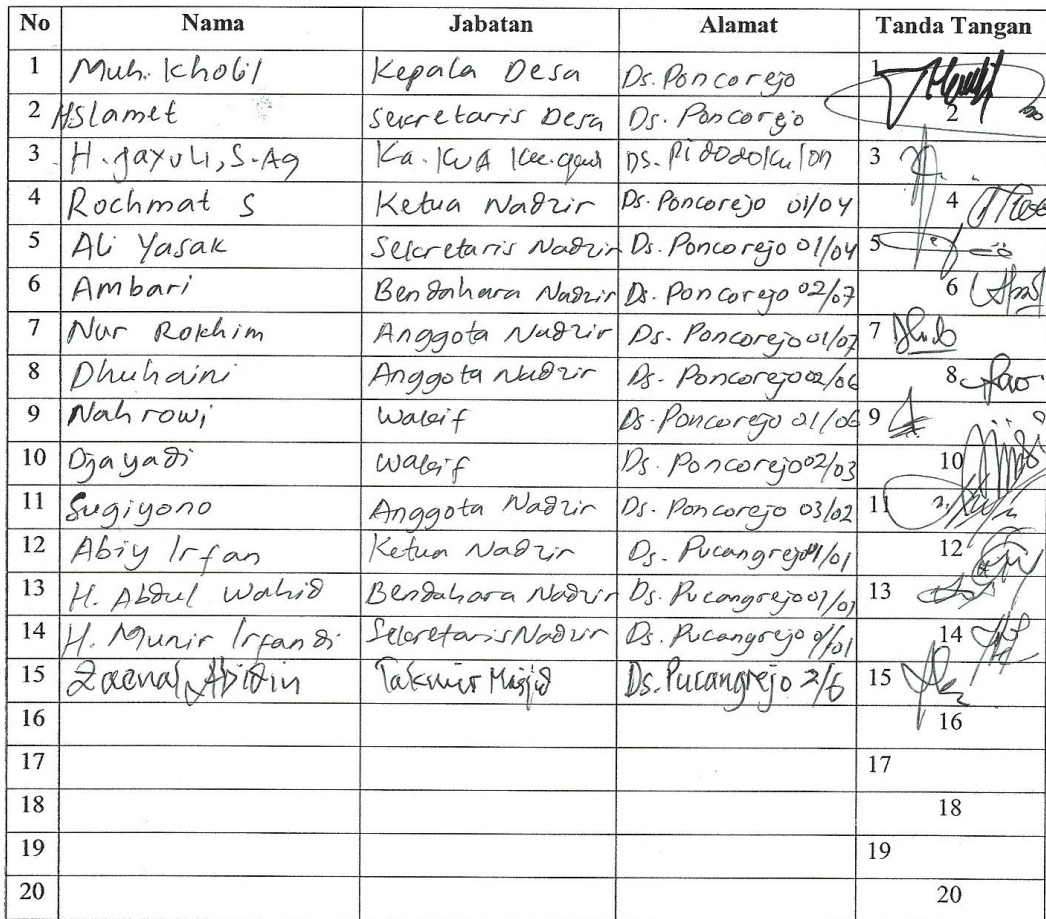 No Nama Jabatan Alamat Tanda Tangan
1 Muh. Kholil Kepala Desa Ds. Poncorejo 1
2 H Slamet Sekretaris Desa Ds. Poncorejo 2
3 H. Jayuli, S.Ag Ka. KUA Kec. Ds. Pidodokulon 3
4 Rochmat S Ketua Nadzir Ds. Poncorejo 01/04 4
5 Ali Yasak Sekretaris Nadzir Ds. Poncorejo 01/04 5
6 Ambari Bendahara Nadzir Ds. Poncorejo 02/07 6
7 Nur Rokhim Anggota Nadzir Ds. Poncorejo 01/07 7
8 Dhuhaini Anggota Nadzir Ds. Poncorejo 02/06 8
9 Nahrowi Wakif Ds. Poncorejo 01/06 9
10 Djayadi Wakif Ds. Poncorejo 02/03 10
11 Sugiyono Anggota Nadzir Ds. Poncorejo 03/02 11
12 Abiy Irfan Ketua Nadzir Ds. Pucangrejo 01/01 12
13 H. Abdul Wahid Bendahara Nadzir Ds. Pucangrejo 01/01 13
14 H. Munir Irfandi Sekretaris Nadzir Ds. Pucangrejo 01/01 14
15 Zaenal Abidin Takmir Masjid Ds. Pucangrejo 2/6 15
16 16
17 17
18 18
19 19
20 20